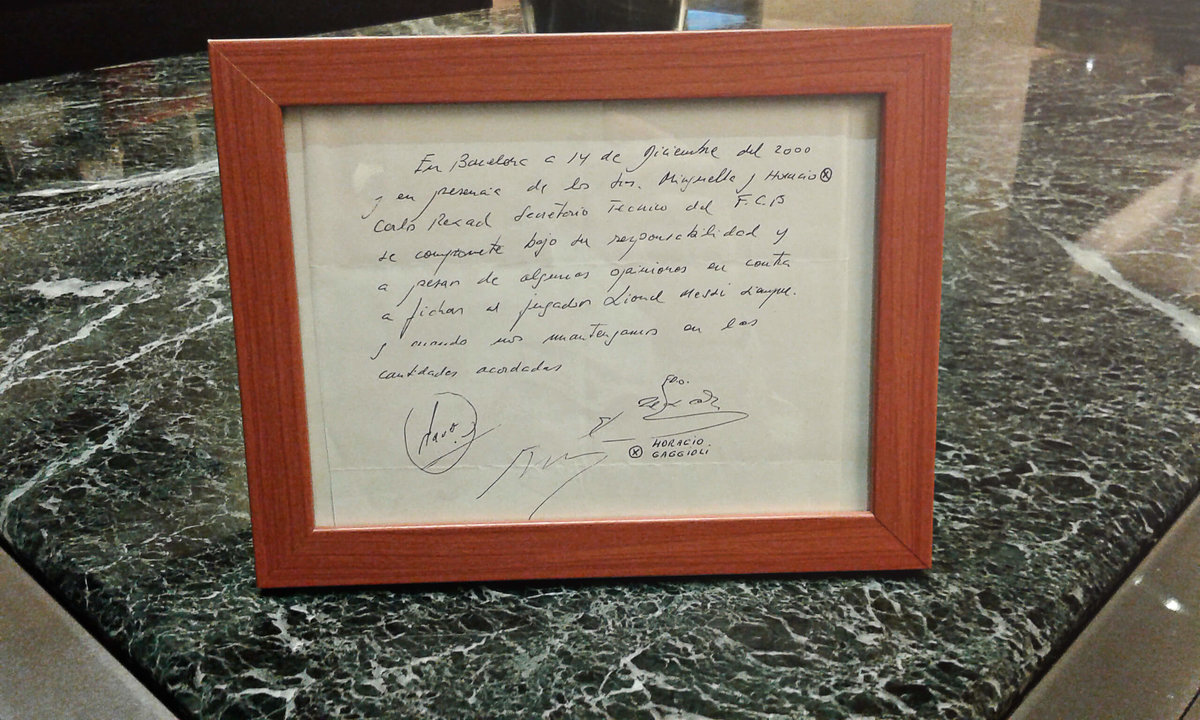 En Barcelona a 14 de Diciembre del 2000
y en presencia de los Srs. Minguella y Horacio ⓧ
Carles Rexach Secretario Tecnico del F.C.B
se compromete bajo su responsabilidad y
a pesar de algunas opiniones en contra
a fichar al jugador Lionel Messi siempre
y cuando nos mantengamos en las
cantidades acordadas
Fdo.
ⓧ HORACIO
GAGGIOLI